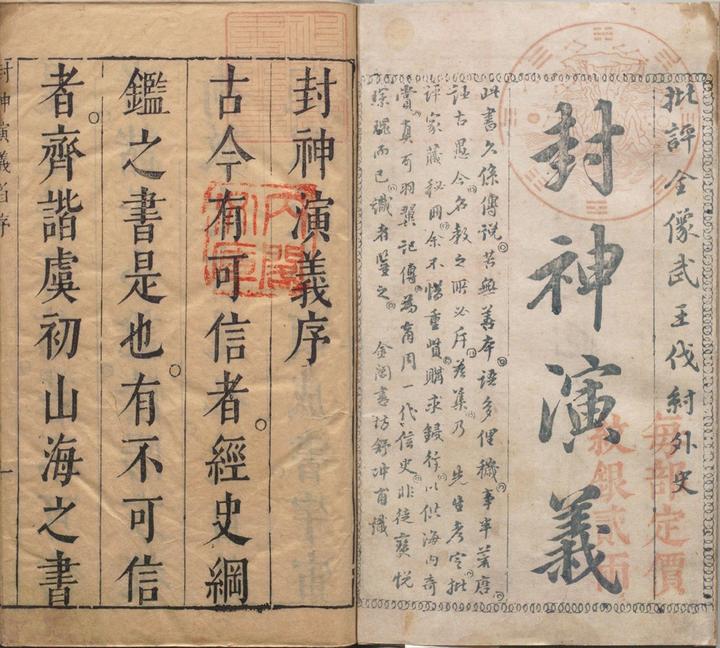 批評全像武王伐紂外史
封神演義
每部定價
紋銀貳兩
此書久係傳說。苦無善本。語多俚穢。事半荒唐。
古愚今。名教之所必斥。茲集乃 先生考定批
評家藏秘冊。余不惜重貲購求鋟行。以供海內奇
賞。真可羽翼記傳。為商周一代信史。非徒寶悅
琛瑰而已。識者鑒之。 金閶書坊舒冲甫識
封神演義序
古今有可信者。經史綱
鑑之書是也。有不可信
者。齊諧虞初山海之書
封神演義 序
一
內閣文庫